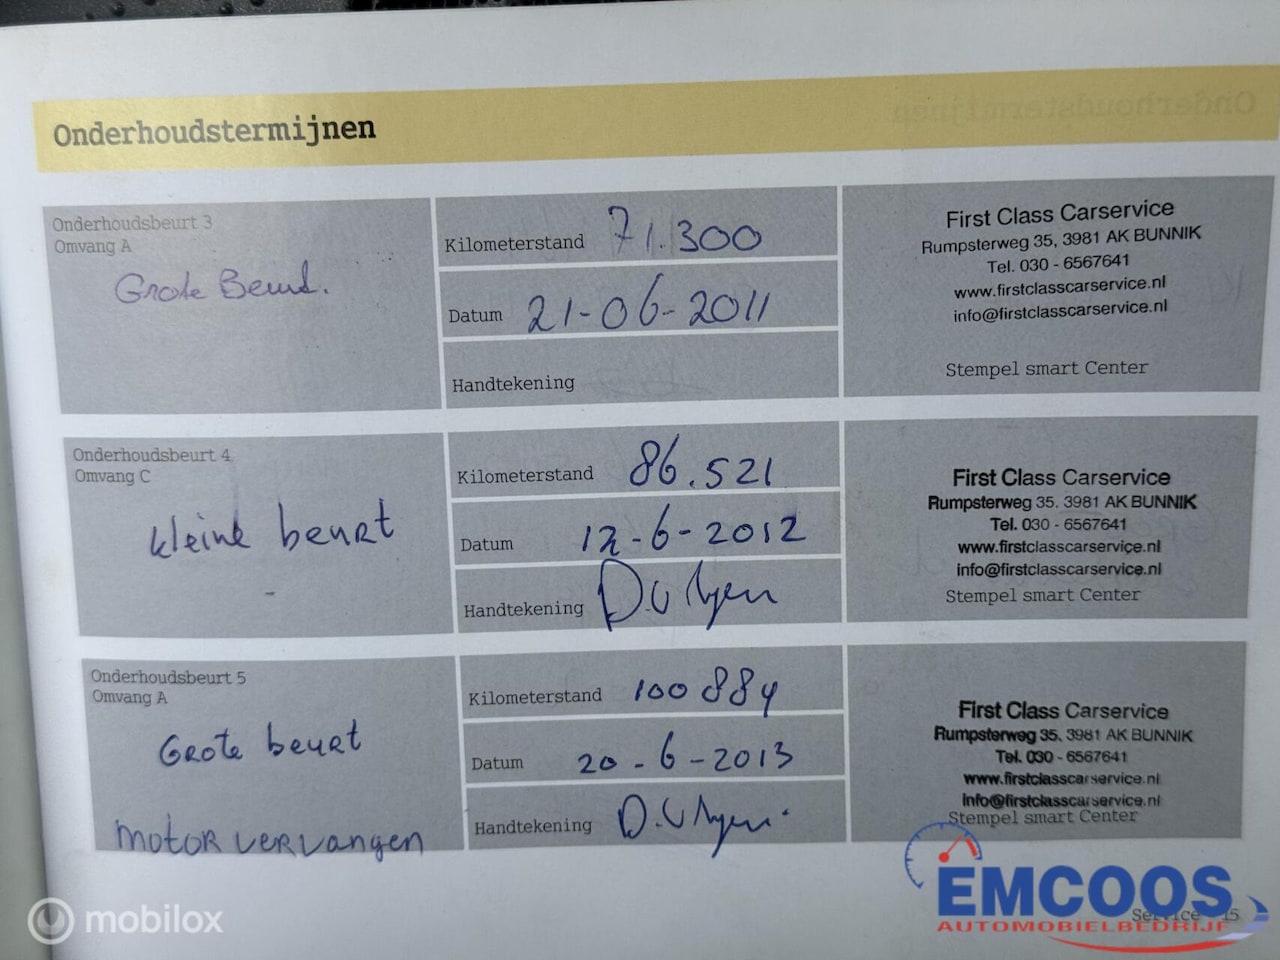 Onderhoudstermijnen
Onderhoudsbeurt 3
Omvang A
Grote Beurt.
Kilometerstand 71.300
Datum 21-06-2011
Handtekening
First Class Carservice
Rumpsterweg 35, 3981 AK BUNNIK
Tel. 030 - 6567641
www.firstclasscarservice.nl
info@firstclasscarservice.nl
Stempel smart Center
Onderhoudsbeurt 4
Omvang C
kleine beurt
Kilometerstand 86.521
Datum 12-6-2012
Handtekening
First Class Carservice
Rumpsterweg 35. 3981 AK BUNNIK
Tel. 030 - 6567641
www.firstclasscarservice.nl
info@firstclasscarservice.nl
Stempel smart Center
Onderhoudsbeurt 5
Omvang A
Grote beurt
motor vervangen
Kilometerstand 100 884
Datum 20-6-2013
Handtekening
First Class Carservice
Rumpsterweg 35. 3981 AK BUNNIK
Tel. 030 - 6567641
www.firstclasscarservice.nl
info@firstclasscarservice.nl
Stempel smart Center
Service 15
mobilox
EMCOOS
AUTOMOBIELBEDRIJF